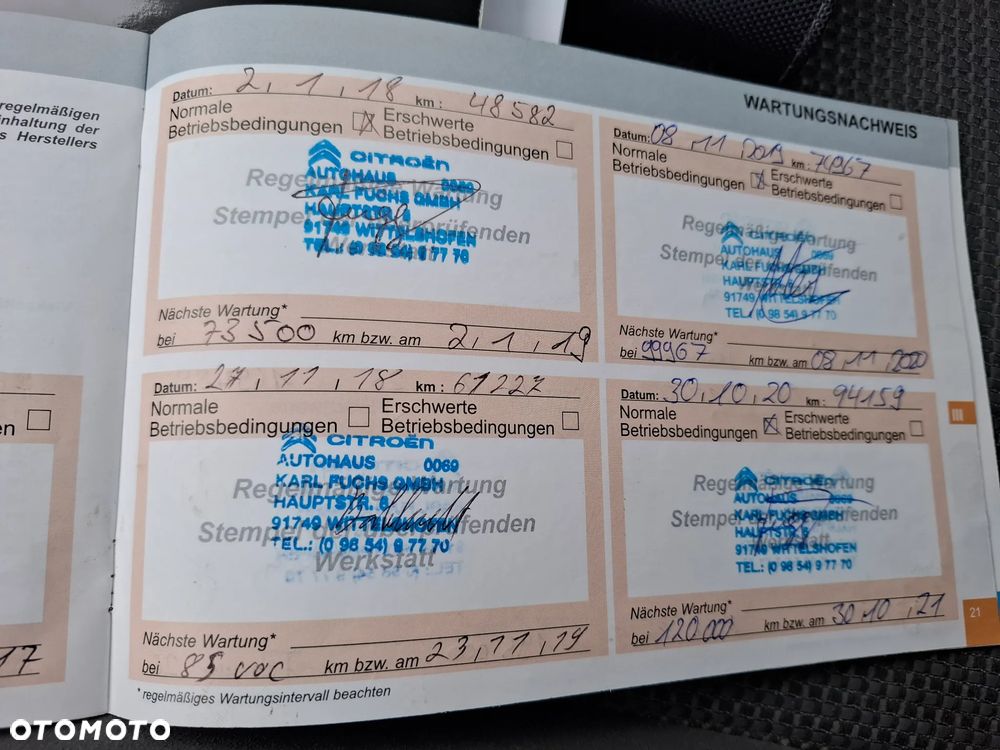 regelmäßigen
inhaltung der
s Herstellers
en
17
WARTUNGSNACHWEIS
Datum: 2, 1, 18 km : 48582
Normale
Betriebsbedingungen
Erschwerte
Betriebsbedingungen
CITROËN
AUTOHAUS 0069
KARL FUCHS GMBH
HAUPTSTR. 6
91749 WITTELSHOFEN
TEL.: (0 98 54) 9 77 70
Regelmäßige Wartung
Stempel der überprüfenden
Werkstatt
Nächste Wartung*
bei 73500 km bzw. am 2, 1, 19
Datum: 27, 11, 18 km : 61227
Normale
Betriebsbedingungen
Erschwerte
Betriebsbedingungen
CITROËN
AUTOHAUS 0069
KARL FUCHS GMBH
HAUPTSTR. 6
91749 WITTELSHOFEN
TEL.: (0 98 54) 9 77 70
Regelmäßige Wartung
Stempel der überprüfenden
Werkstatt
Nächste Wartung*
bei km bzw. am 23, 11, 19
*regelmäßiges Wartungsintervall beachten
Datum: 08 .11 2019 km : 74967
Normale
Betriebsbedingungen
Erschwerte
Betriebsbedingungen
CITROËN
AUTOHAUS 0069
KARL FUCHS GMBH
HAUPTSTR. 6
91749 WITTELSHOFEN
TEL.: (0 98 54) 9 77 70
Regelmäßige Wartung
Stempel der überprüfenden
Werkstatt
Nächste Wartung*
bei 99967 km bzw. am 08.11.2020
Datum: 30.10.20 km : 94159
Normale
Betriebsbedingungen
Erschwerte
Betriebsbedingungen
CITROËN
AUTOHAUS 0069
KARL FUCHS GMBH
HAUPTSTR. 6
91749 WITTELSHOFEN
TEL.: (0 98 54) 9 77 70
Regelmäßige Wartung
Stempel der überprüfenden
Werkstatt
Nächste Wartung*
bei 120000 km bzw. am 30.10.21
III
21
OTOMOTO